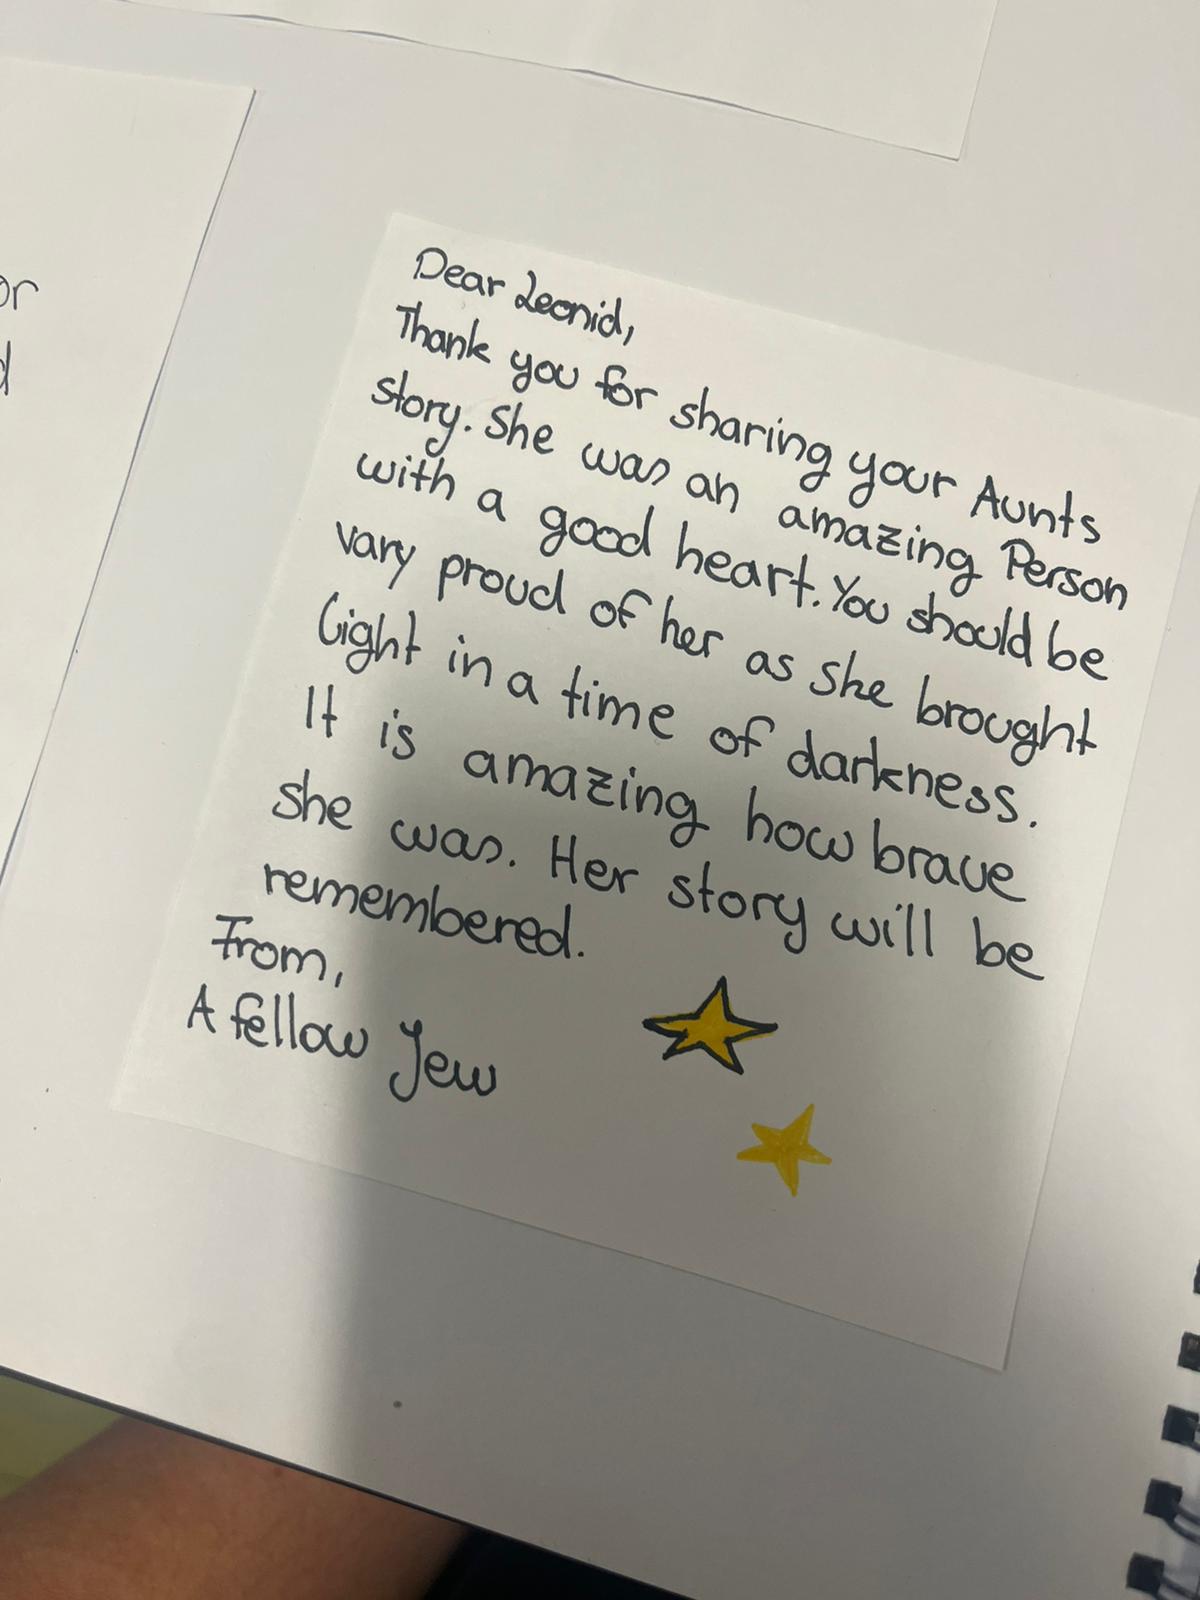 or
d
Dear Leonid,
Thank you for sharing your Aunts
story. She was an amazing Person
with a good heart. You should be
vary proud of her as she brought
light in a time of darkness.
It is amazing how brave
she was. Her story will be
remembered.
From,
A fellow Jew